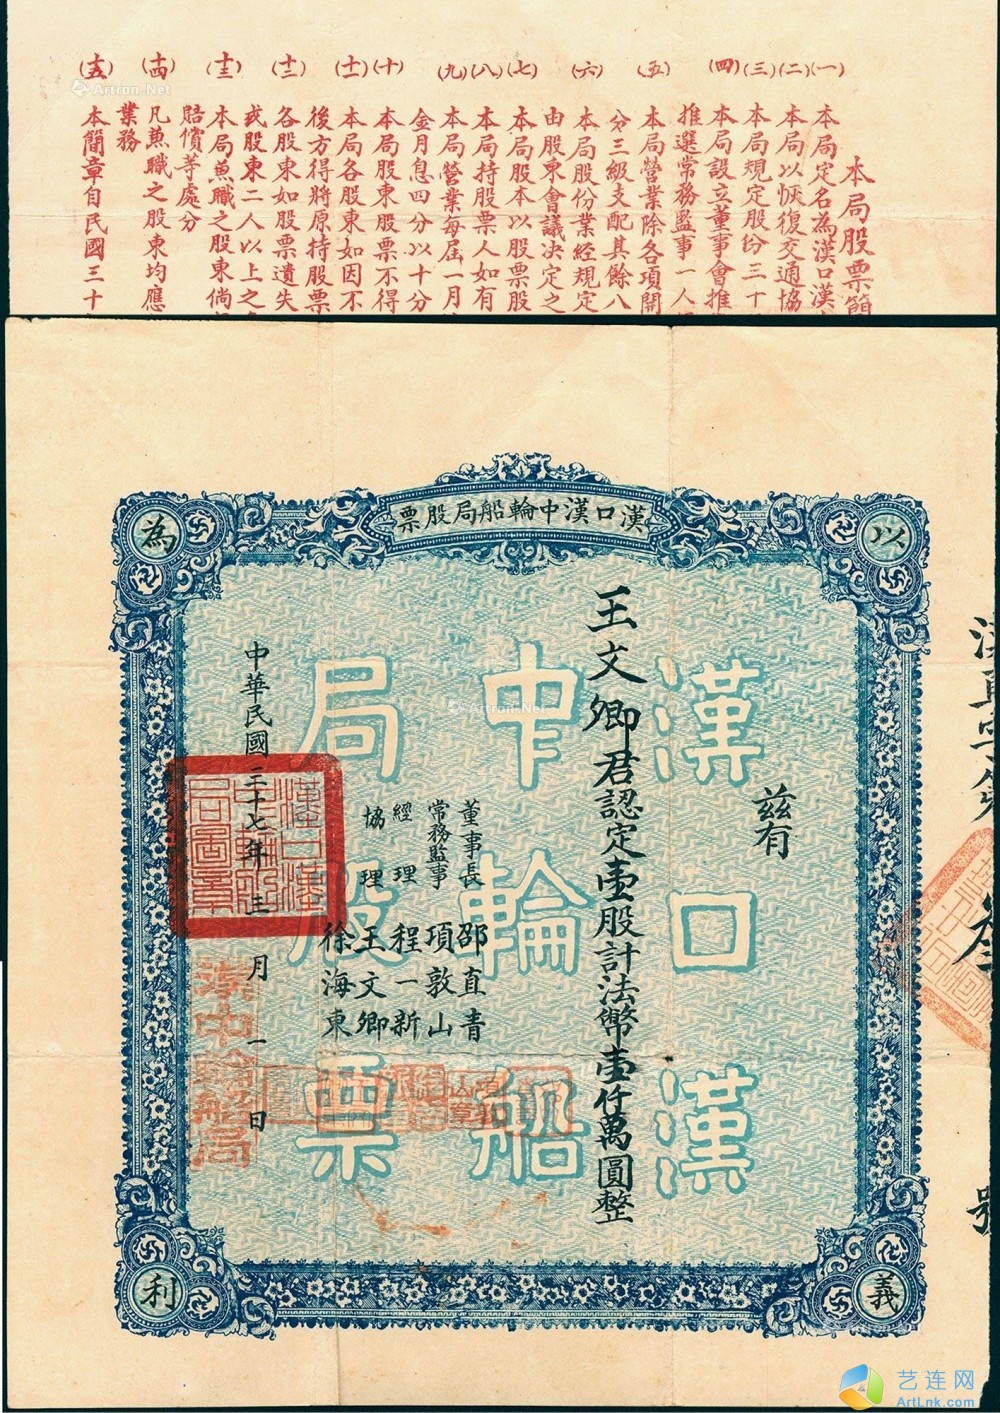 本局股票簡
(一) 本局定名為漢口漢
(二) 本局以恢復交通協
(三) 本局規定股份三十
(四) 本局設立董事會推
推選常務監事一人
(五) 本局營業除各項開
分三級支配其餘八
(六) 本局股份業經規定
由股東會議決定之
(七) 本局股本以股票股
(八) 本局持股票人如有
(九) 本局營業每屆一月
金月息四分以十分
(十) 本局股東股票不得
(十一) 本局各股東如因不
後方得將原持股票
(十二) 各股東如股票遺失
或股東二人以上之
(十三) 本局兼職之股東倘
賠償等處分
(十四) 凡兼職之股東均應
業務
(十五) 本簡章自民國三十
漢口漢中輪船局股票
以義為利
漢口漢中輪船局股票
茲有
王文卿君認定壹股計法幣壹仟萬圓整
董事長 邵直青
常務監事 項敦山
經理 程一新
協理 王文卿
徐海東
中華民國三十七年三月一日
漢中輪船局
號
Artron.Net
艺连网
ArtLnk.com